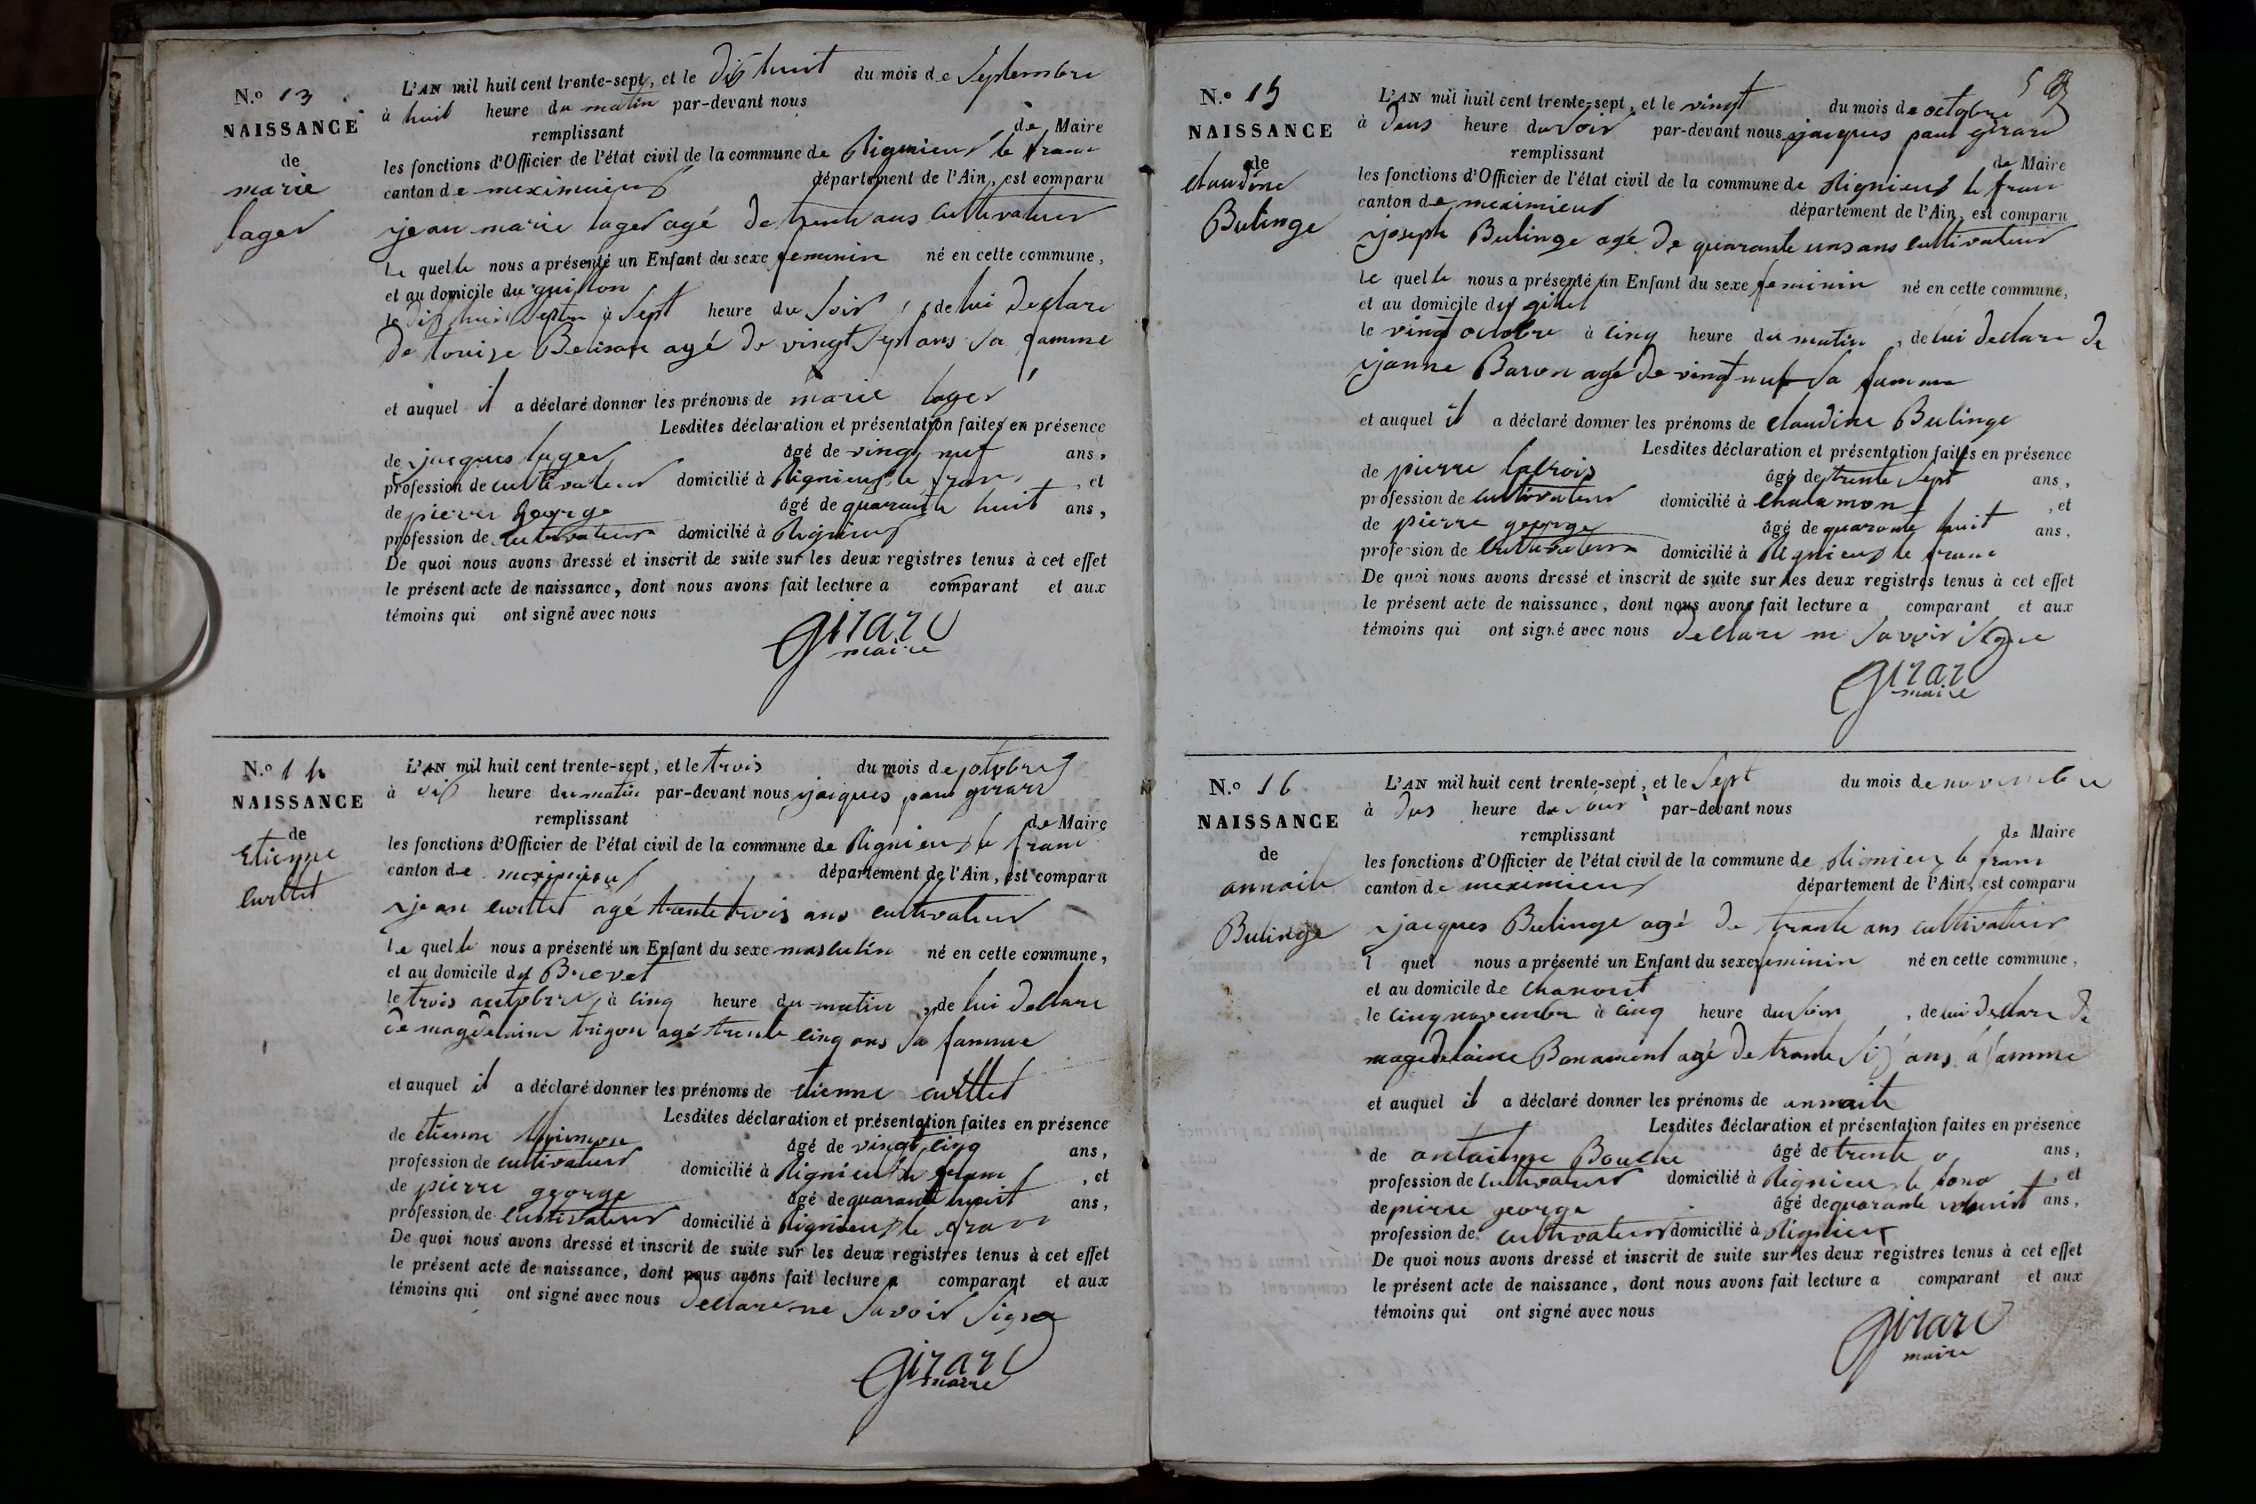 N.o 13
NAISSANCE
de
marie
lager
L'AN mil huit cent trente-sept, et le dix huit du mois de Septembre
à huit heure du matin par-devant nous
remplissant de Maire
les fonctions d'Officier de l'état civil de la commune de Rignieux le franc
canton de meximieux département de l'Ain, est comparu
jean marie lager agé de trente ans cultivateur
le quel le nous a présenté un Enfant du sexe feminin né en cette commune,
et au domicile du guillon
le dix huit à Sept heure du Soir, de lui declare
de louise agé de vingt Sept ans Sa famme
et auquel il a déclaré donner les prénoms de marie lager
Lesdites déclaration et présentation faites en présence
de jacques lager âgé de vingt nuf ans,
profession de cultivateur domicilié à Rignieux le franc, et
de pierre george âgé de quarante huit ans,
profession de cultivateur domicilié à Rignieux
De quoi nous avons dressé et inscrit de suite sur les deux registres tenus à cet effet
le présent acte de naissance, dont nous avons fait lecture a comparant et aux
témoins qui ont signé avec nous
girard
maire
N.o 14
NAISSANCE
de
Etienne
Curttet
L'AN mil huit cent trente-sept, et le trois du mois de octobre
à dix heure du matin par-devant nous jacques paul girard
remplissant de Maire
les fonctions d'Officier de l'état civil de la commune de Rignieux le franc
canton de meximieux département de l'Ain, est comparu
jean curttet agé trente trois ans cultivateur
le quel le nous a présenté un Enfant du sexe masculin né en cette commune,
et au domicile du Brevet
le trois auctobre à cinq heure du matin, de lui declare
de magdelaine trigon agé trente cinq ans Sa famme
et auquel il a déclaré donner les prénoms de etienne curttet
Lesdites déclaration et présentation faites en présence
de etienne âgé de vingt cinq ans,
profession de cultivateur domicilié à Rignieux le franc, et
de pierre george âgé de quarante huit ans,
profession de cultivateur domicilié à Rignieux le franc
De quoi nous avons dressé et inscrit de suite sur les deux registres tenus à cet effet
le présent acte de naissance, dont nous avons fait lecture a comparant et aux
témoins qui ont signé avec nous declare ne Savoir Signer
girard
maire
N.o 15
NAISSANCE
de
claudine
Bulinge
L'AN mil huit cent trente-sept, et le vingt du mois de octobre
à deus heure du Soir par-devant nous jacques paul girard
remplissant de Maire
les fonctions d'Officier de l'état civil de la commune de Rignieux le franc
canton de meximieux département de l'Ain, est comparu
joseph Bulinge agé de quarante uns ans cultivateur
le quel le nous a présenté un Enfant du sexe feminin né en cette commune,
et au domicile du
le vingt octobre à cinq heure du matin, de lui declare de
janne Baron agé de vingt nuf Sa famme
et auquel il a déclaré donner les prénoms de claudine Bulinge
Lesdites déclaration et présentation faites en présence
de pierre lacroix âgé de trente Sept ans,
profession de cultivateur domicilié à chalamont, et
de pierre george âgé de quarante huit ans,
profession de cultivateur domicilié à Rignieux le franc
De quoi nous avons dressé et inscrit de suite sur les deux registres tenus à cet effet
le présent acte de naissance, dont nous avons fait lecture a comparant et aux
témoins qui ont signé avec nous declare ne Savoir Signe
girard
maire
N.o 16
NAISSANCE
de
annaite
Bulinge
L'AN mil huit cent trente-sept, et le Sept du mois de novembre
à dus heure du soir par-devant nous
remplissant de Maire
les fonctions d'Officier de l'état civil de la commune de Rignieux le franc
canton de meximieux département de l'Ain, est comparu
jacques Bulinge agé de trante ans cultivateur
l quel nous a présenté un Enfant du sexe feminin né en cette commune,
et au domicile de chanout
le cinq novembre à cinq heure du soir, de lui declare de
magedelaine Bonament agé de trante Six ans Sa famme
et auquel il a déclaré donner les prénoms de annaite
Lesdites déclaration et présentation faites en présence
de antoine Bouchu âgé de trente ans,
profession de cultivateur domicilié à Rignieux le franc, et
de pierre george âgé de quarante huit ans,
profession de cultivateur domicilié à Rignieux
De quoi nous avons dressé et inscrit de suite sur les deux registres tenus à cet effet
le présent acte de naissance, dont nous avons fait lecture a comparant et aux
témoins qui ont signé avec nous
girard
maire